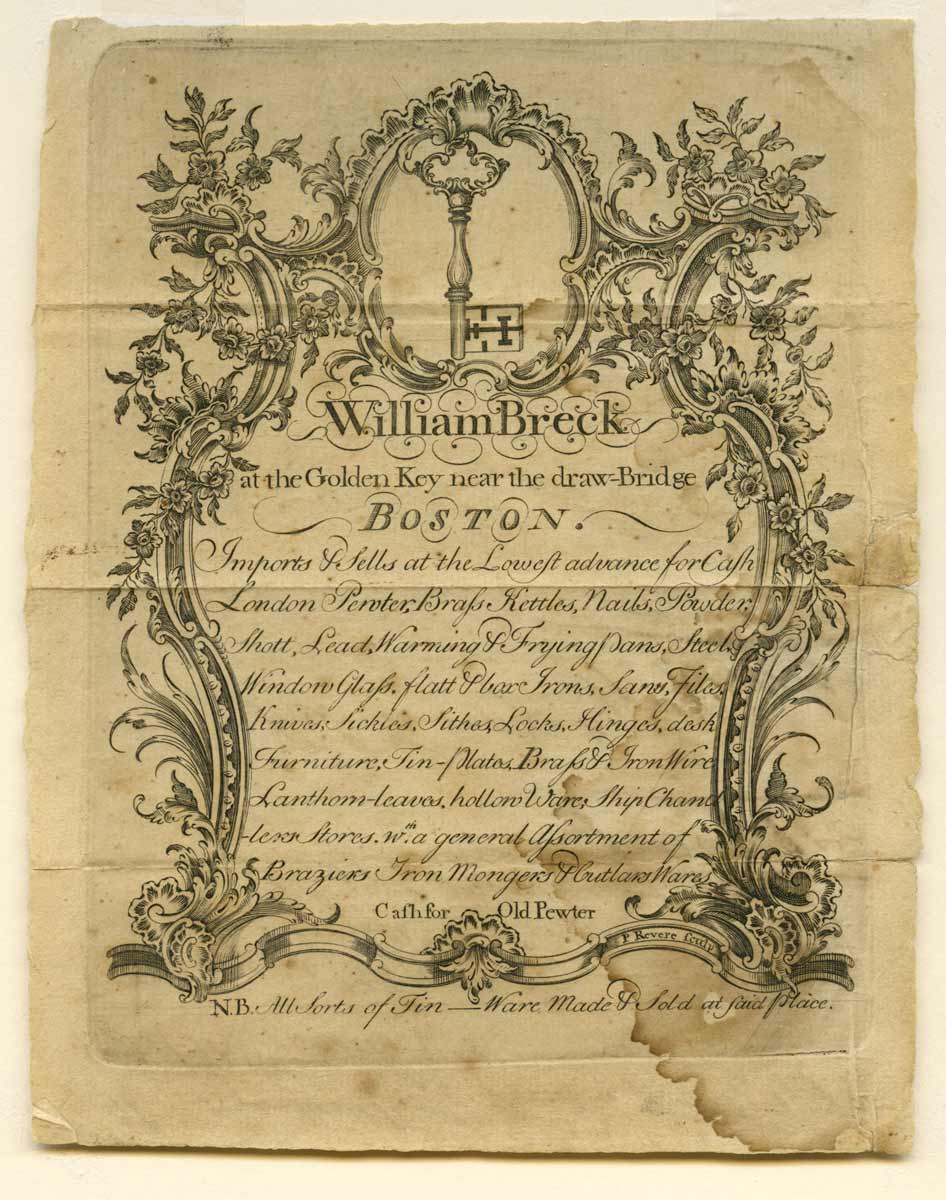 William Breck
at the Golden Key near the draw-Bridge
BOSTON.
Imports & Sells at the Lowest advance for Cash
London Pewter, Brass Kettles, Nails, Powder,
Shott, Lead, Warming & Frying pans, Steel,
Window Glass, flatt & box Irons, Saws, Files,
Knives, Sickles, Sithes, Locks, Hinges, desk
Furniture, Tin-plates, Brass & Iron Wire
Lanthorn-leaves, hollow Ware, Ship Chand
-lers Stores. wth. a general Assortment of
Braziers Iron Mongers & Cutlars Wares
Cash for Old Pewter
P Revere sculp
N.B. All Sorts of Tin — Ware Made & Sold at said place.